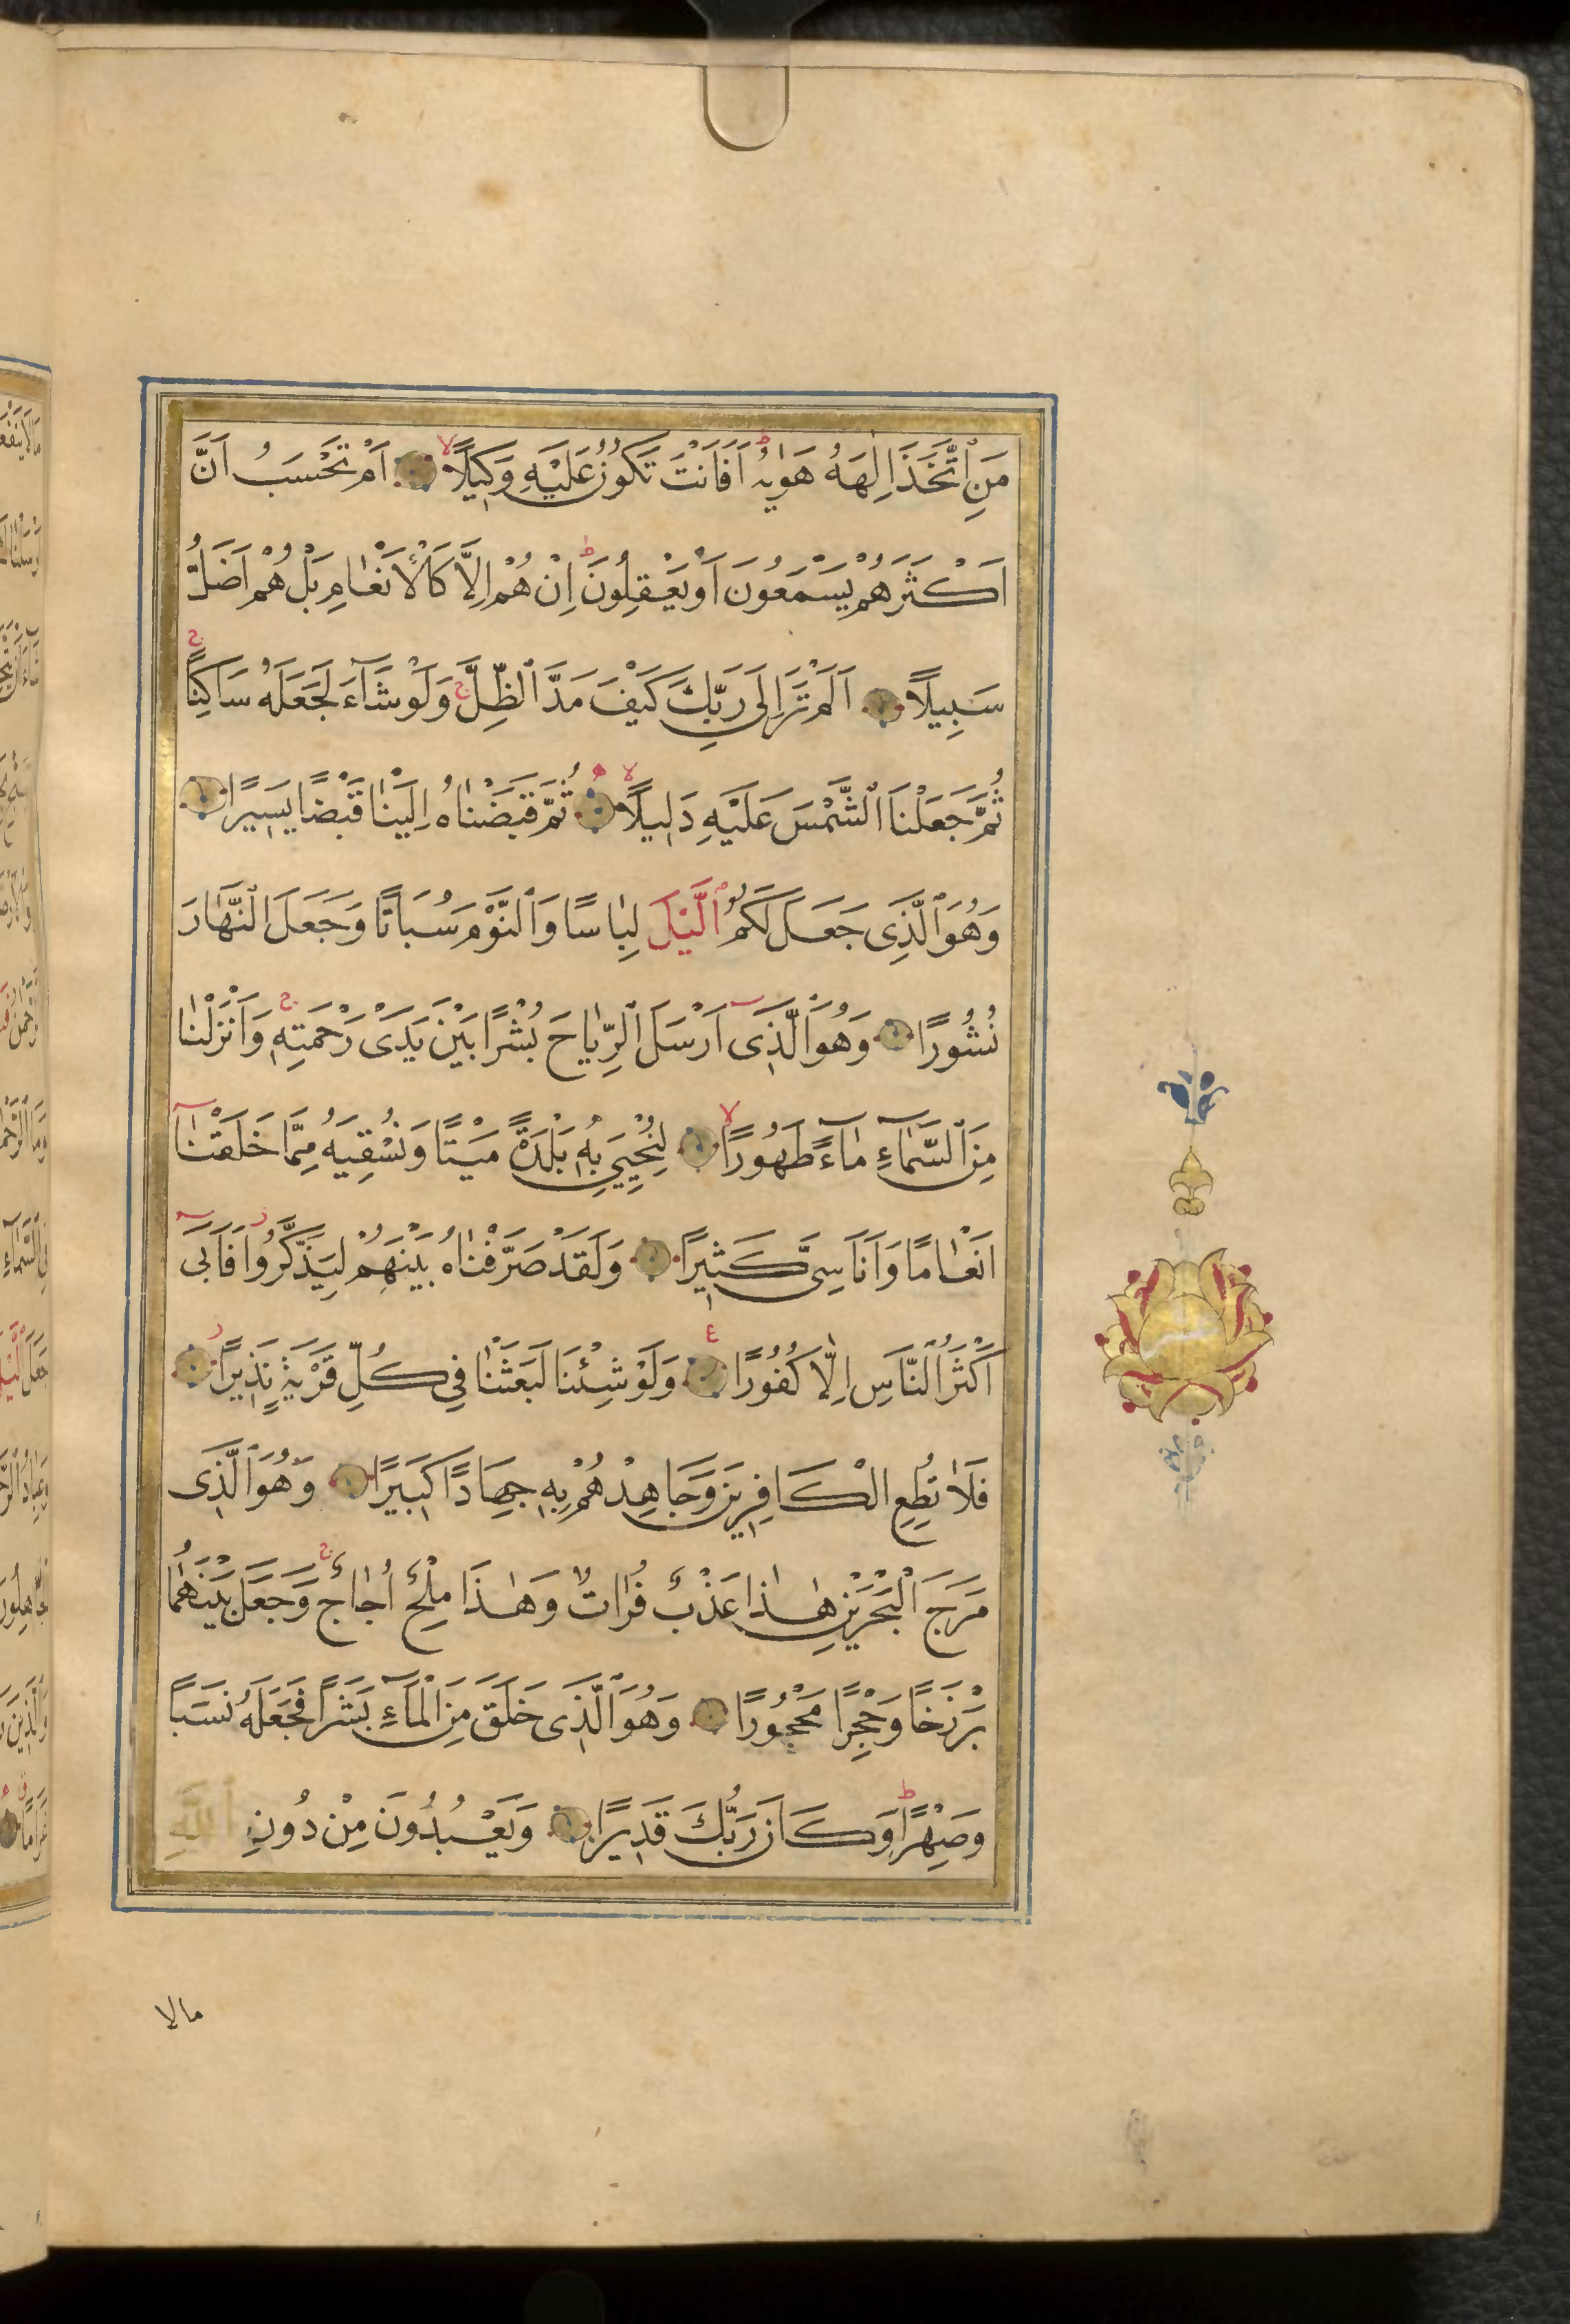 مَنِ ٱتَّخَذَ اِلٰهَهُ هَوٰيهُ ط اَفَاَنْتَ تَكُونُ عَلَيْهِ وَكِيلًا لا اَمْ تَحْسَبُ اَنَّ
اَكْثَرَهُمْ يَسْمَعُونَ اَوْ يَعْقِلُونَ ط اِنْ هُمْ اِلَّا كَالْاَنْعٰامِ بَلْ هُمْ اَضَلُّ
سَبِيلًا اَلَمْ تَرَ اِلٰى رَبِّكَ كَيْفَ مَدَّ ٱلظِّلَّ ج وَلَوْ شَآءَ لَجَعَلَهُ سَاكِنًا ج
ثُمَّ جَعَلْنَا ٱلشَّمْسَ عَلَيْهِ دَلِيلًا لا ثُمَّ قَبَضْنٰاهُ اِلَيْنٰا قَبْضًا يَسِيرًا
وَهُوَ ٱلَّذِى جَعَلَ لَكُمُ ٱلَّيْلَ لِبٰاسًا وَٱلنَّوْمَ سُبَاتًا وَجَعَلَ ٱلنَّهَارَ
نُشُورًا وَهُوَ ٱلَّذِىٓ اَرْسَلَ ٱلرِّيٰاحَ بُشْرًا بَيْنَ يَدَىْ رَحْمَتِهِ ج وَاَنْزَلْنٰا
مِنَ ٱلسَّمٰآءِ مٰآءً طَهُورًا لا لِنُحْيِيَ بِهِ بَلْدَةً مَيْتًا وَنُسْقِيَهُ مِمَّا خَلَقْنٰآ
اَنْعٰامًا وَاَنَاسِىَّ كَثِيرًا وَلَقَدْ صَرَّفْنٰاهُ بَيْنَهُمْ لِيَذَّكَّرُوا ز فَاَبٰىٓ
اَكْثَرُ ٱلنَّاسِ اِلَّا كُفُورًا ع وَلَوْ شِئْنَا لَبَعَثْنٰا فِى كُلِّ قَرْيَةٍ نَذِيرًا ز
فَلَا تُطِعِ الْكَافِرِينَ وَجَاهِدْهُمْ بِهِ جِهَادًا كَبِيرًا وَهُوَ ٱلَّذِى
مَرَجَ ٱلْبَحْرَيْنِ هٰذٰا عَذْبٌ فُرٰاتٌ وَهٰذَا مِلْحٌ اُجٰاجٌ ج وَجَعَلَ بَيْنَهُمٰا
بَرْزَخًا وَحِجْرًا مَحْجُورًا وَهُوَ ٱلَّذِى خَلَقَ مِنَ ٱلْمَآءِ بَشَرًا فَجَعَلَهُ نَسَبًا
وَصِهْرًا ط وَكَانَ رَبُّكَ قَدِيرًا وَيَعْبُدُونَ مِنْ دُونِ اللّٰهِ
مالا